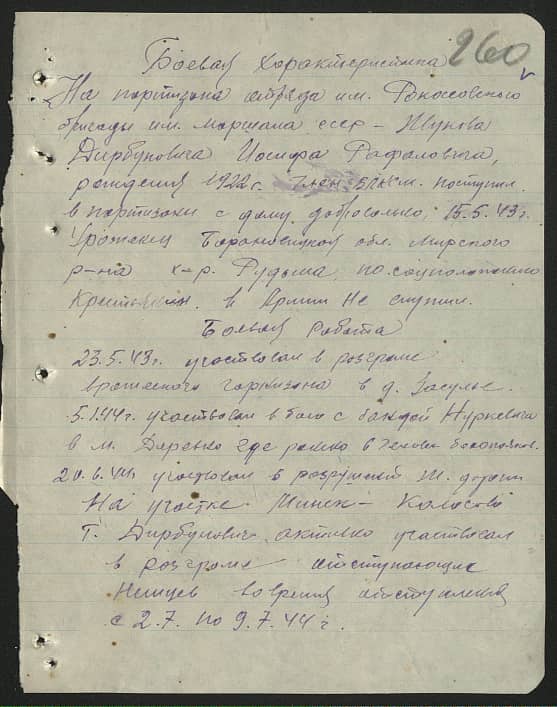 260
Боевая характеристика
На партизана отряда им. Рокоссовского
бригады им. маршала ссср - Жукова
Дирбуновича Иосифа Рафаловича,
рождения 1922 г. член ВЛКСМ. поступил
в партизаны с дому добровольно, 15.5.43г.
Уроженец Барановичской обл. Мирского
р-на х-р. Рудьма, по соцположению
Крестьянин. в Армии не служил.
Боевая работа
23.5.43г. участвовал в розгроме
вражеского гарнизона в д. Засулье.
5.1.44г. участвовал в бою с бандой Нуркевича
в м. Деревно где
20.6.44г. участвовал в розрушении ж. дороги
На участке Минск - Колосово
Т. Дирбунович активно участвовал
в розгроме отступающих
Немцев вовремя отступления
с 2.7. по 9.7.44 г.